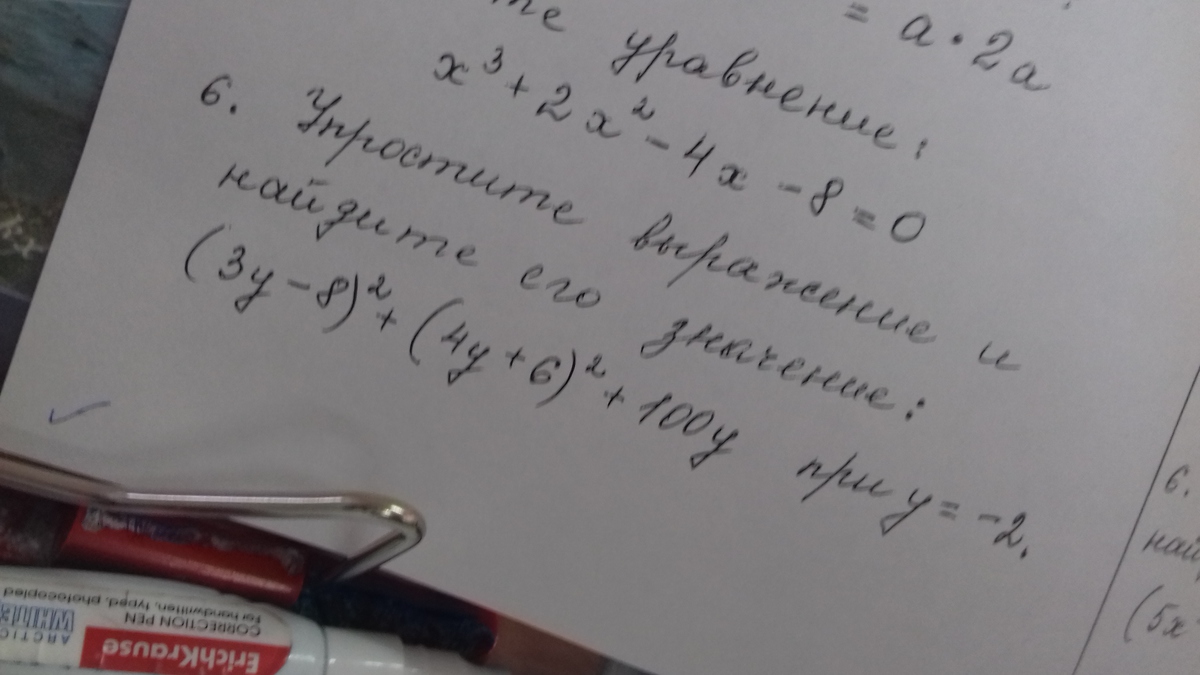 = a · 2a
те уравнение:
x³ + 2x² - 4x - 8 = 0
6. Упростите выражение и
найдите его значение:
(3y - 8)² + (4y + 6)² + 100y при y = -2.
6.
най
(5x
ErichKrause
CORRECTION PEN
For handwritten, typed, photocopied
ARCTIC
WHITE